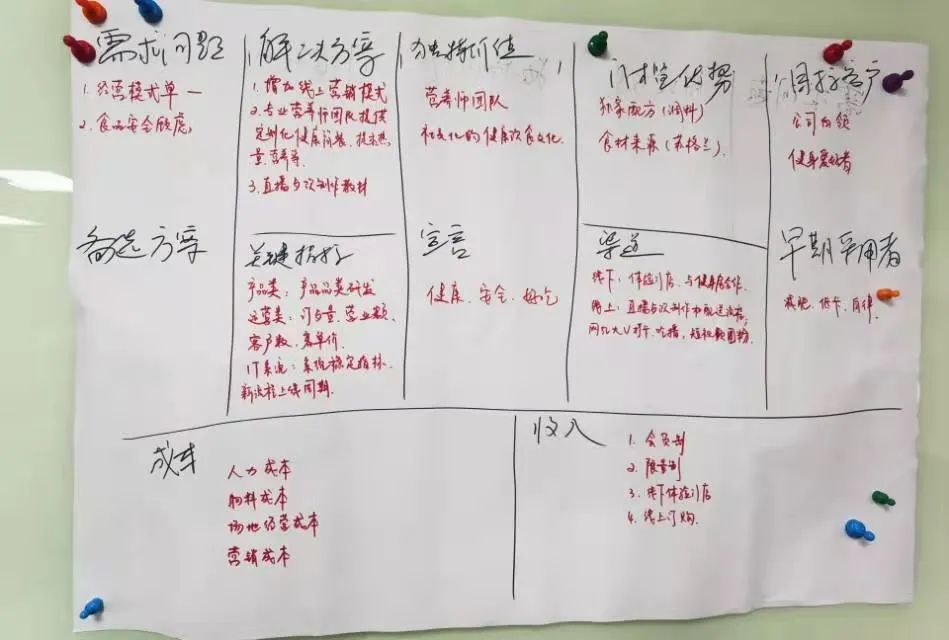 需求问题
1. 经营模式单一
2. 食品安全顾虑
解决方案
1. 增加线上营销模式
2. 专业营养师团队提供
定制化健康简餐、提示热
量、营养等
3. 直播与次制作教材
独特价值
营养师团队
和文化的健康饮食文化
门槛优势
独家配方(调料)
食材来源(苏格兰)
目标客户
公司白领
健身爱好者
备选方案
关键指标
产品类:产品品类研发
运营类:订单量、营业额、
客户数、客单价
IT系统:系统稳定指标、
新流程上线周期
宣言
健康、安全、好吃
渠道
线下:体验门店、与健身房合作
线上:直播与次制作和配送流程,
网红大V 短视频
早期采用者
减肥、低卡、自律
成本
人力成本
物料成本
场地经营成本
营销成本
收入
1. 会员制
2. 限量制
3. 线下体验门店
4. 线上订购